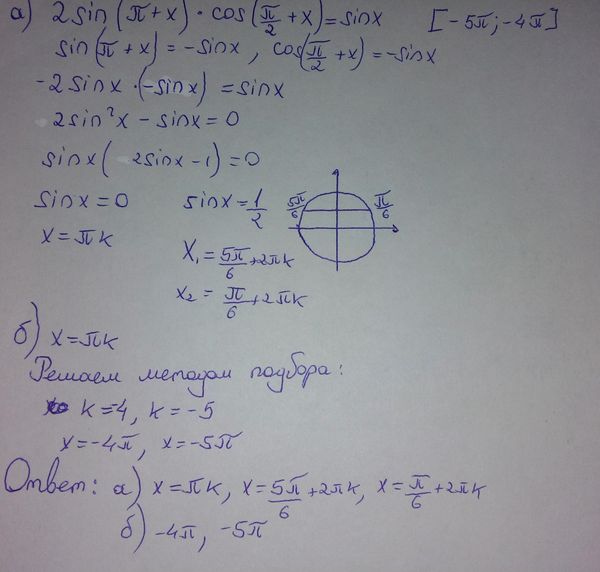 а) 2sin(π+x)·cos(π/2+x)=sinx [-5π;-4π]
sin(π+x)=-sinx, cos(π/2+x)=-sinx
-2sinx·(-sinx)=sinx
2sin²x-sinx=0
sinx(2sinx-1)=0
sinx=0 sinx=1/2 5π/6 π/6
x=πk x₁=5π/6+2πk
x₂=π/6+2πk
б) x=πk
Решаем методом подбора:
k=-4, k=-5
x=-4π, x=-5π
Ответ: а) x=πk, x=5π/6+2πk, x=π/6+2πk
б) -4π, -5π